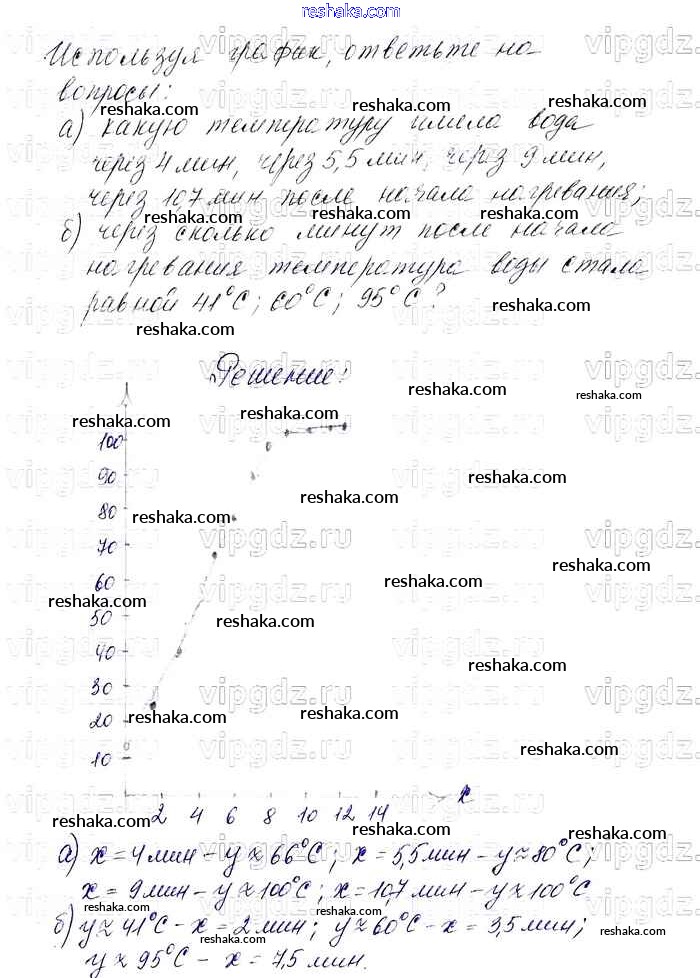 reshaka.com
Используя график, ответьте на
вопросы:
а) какую температуру имела вода
через 4 мин, через 5,5 мин, через 9 мин,
через 10,7 мин после начала нагревания;
б) через сколько минут после начала
нагревания температура воды стала
равной 41°С; 60°С; 95°С?
Решение:
100
90
80
70
60
50
40
30
20
10
2 4 6 8 10 12 14 x
а) x = 4 мин - y ≈ 66°С; x = 5,5 мин - y ≈ 80°С;
x = 9 мин - y ≈ 100°С; x = 10,7 мин - y ≈ 100°С
б) y ≈ 41°С - x = 2 мин; y ≈ 60°С - x = 3,5 мин;
y ≈ 95°С - x = 7,5 мин.